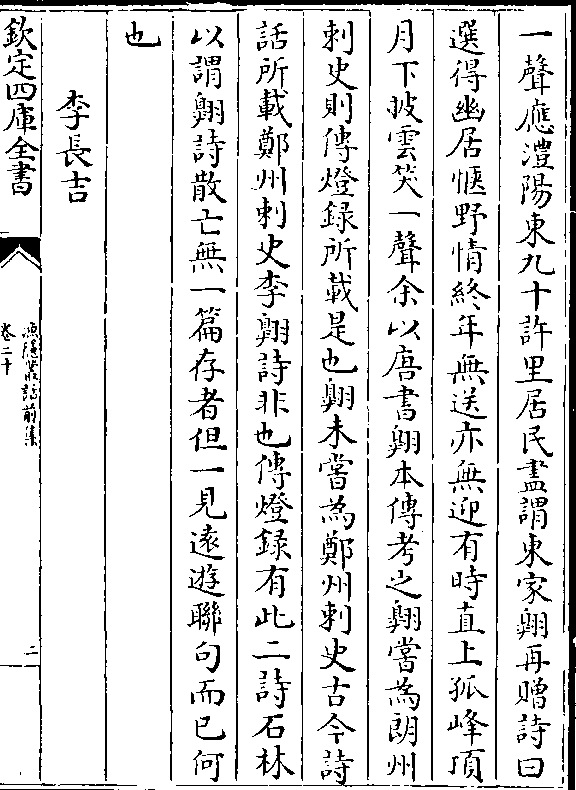 一聲應澧陽東九十許里居民盡謂東家翺再贈詩曰
選得幽居愜野情終年無送亦無迎有時直上孤峰頂
月下披雲笑一聲余以唐書翺本傳考之翺嘗為朗州
刺史則傳燈録所載是也翺未嘗為鄭州刺史古今詩
話所載鄭州刺史李翺詩非也傳燈録有此二詩石林
以謂翺詩散亡無一篇存者但一見遠遊聯句而已何
也
李長吉
欽定四庫全書
漁隱叢話前集
卷二十
二